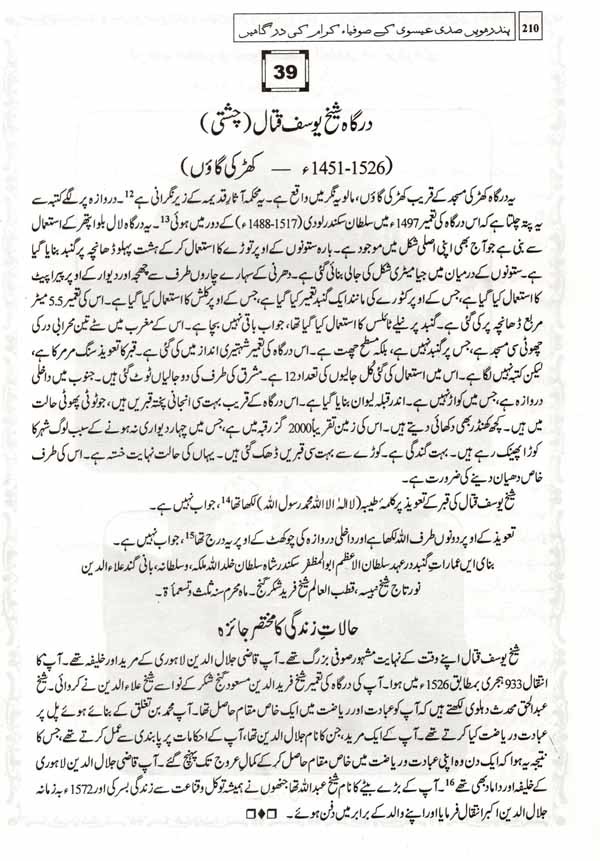 210 پندرہویں صدی عیسوی کے صوفیاء کرام کی درگاہیں
39
درگاہ شیخ یوسف قتال (چشتی)
(1451-1526ء — کھڑکی گاؤں)
یہ درگاہ کھڑکی مسجد کے قریب کھڑکی گاؤں، مالویہ نگر میں واقع ہے۔ یہ محکمہ آثار قدیمہ کے زیر نگرانی ہے12۔ دروازہ پر لگے کتبہ سے
یہ پتہ چلتا ہے کہ اس درگاہ کی تعمیر 1497ء میں سلطان سکندر لودی (1517-1488ء) کے دور میں ہوئی13۔ یہ درگاہ لال بلوا پتھر کے استعمال
سے بنی ہے جو آج بھی اپنی اصلی شکل میں موجود ہے۔ بارہ ستونوں کے اوپر توڑے کا استعمال کر کے ہشت پہلو ڈھانچہ پر گنبد بنایا گیا
ہے۔ ستونوں کے درمیان میں جیامیٹری شکل کی جالی بنائی گئی ہے۔ دھرنی کے سہارے چاروں طرف سے چھجہ اور دیوار کے اوپر پیراپیٹ
کا استعمال کیا گیا ہے، جس کے اوپر کٹورے کی مانند ایک گنبد تعمیر کیا گیا ہے، جس کے اوپر کلش کا استعمال کیا گیا ہے۔ اس کی تعمیر 5.5 میٹر
مربع ڈھانچہ پر کی گئی ہے۔ گنبد پر نیلے ٹائلس کا استعمال کیا گیا تھا، جو اب باقی نہیں بچا ہے۔ اس کے مغرب میں سٹے تین محرابی در کی
چھوٹی سی مسجد ہے، جس پر گنبد نہیں ہے، بلکہ سطح چھت ہے۔ اس درگاہ کی تعمیر شہتیری انداز میں کی گئی ہے۔ قبر کا تعویذ سنگ مرمر کا ہے،
لیکن کتبہ نہیں لگا ہے۔ اس میں استعمال کی گئی کُل جالیوں کی تعداد 12 ہے۔ مشرق کی طرف کی دو جالیاں ٹوٹ گئی ہیں۔ جنوب میں داخلی
دروازہ ہے، جس میں کواڑ نہیں ہے۔ اندر قبلہ لیوان بنایا گیا ہے۔ اس درگاہ کے قریب بہت سی انجانی پختہ قبریں ہیں، جو ٹوٹی پھوٹی حالت
میں ہیں۔ کچھ کھنڈر بھی دکھائی دیتے ہیں۔ اس کی زمین تقریباً 2000 گز رقبہ میں ہے، جس میں چہار دیواری نہ ہونے کے سبب لوگ شہر کا
کوڑا پھینک رہے ہیں۔ بہت گندگی ہے۔ کوڑے سے بہت سی قبریں ڈھک گئی ہیں۔ یہاں کی حالت نہایت خستہ ہے۔ اس کی طرف
خاص دھیان دینے کی ضرورت ہے۔
شیخ یوسف قتال کی قبر کے تعویذ پر کلمۂ طیبہ (لا الہ الا اللہ محمد رسول اللہ) لکھا تھا14، جو اب نہیں ہے۔
تعویذ کے اوپر دونوں طرف اللہ لکھا ہے اور داخلی دروازہ کی چوکھٹ کے اوپر یہ درج تھا15، جو اب نہیں ہے۔
بنای ایں عمارات گنبد در عہد سلطان الاعظم ابوالمظفر سکندر شاہ سلطان خلد اللہ ملکہ، وسلطانہ، بانی گند علاء الدین
نور تاج شیخ مہیسہ، قطب العالم شیخ فرید شکر گنج۔ ماہ محرم سنہ ثلث و تسعمأۃ۔
حالات زندگی کا مختصر جائزہ
شیخ یوسف قتال اپنے وقت کے نہایت مشہور صوفی بزرگ تھے۔ آپ قاضی جلال الدین لاہوری کے مرید اور خلیفہ تھے۔ آپ کا
انتقال 933 ہجری بمطابق 1526ء میں ہوا۔ آپ کی درگاہ کی تعمیر شیخ فرید الدین مسعود گنج شکر کے نواسے شیخ علاء الدین نے کروائی۔ شیخ
عبدالحق محدث دہلوی لکھتے ہیں کہ آپ کو عبادت اور ریاضت میں ایک خاص مقام حاصل تھا۔ آپ محمد بن تغلق کے بنائے ہوئے پل پر
عبادت و ریاضت کیا کرتے تھے۔ آپ کے ایک مرید، جن کا نام جلال الدین تھا، آپ کے احکامات پر پابندی سے عمل کرتے تھے، جس کا
نتیجہ یہ ہوا کہ ایک دن وہ اپنی عبادت و ریاضت میں خاص مقام حاصل کر کے کمال عروج تک پہنچ گئے۔ آپ قاضی جلال الدین لاہوری
کے خلیفہ اور داماد بھی تھے16۔ آپ کے بڑے بیٹے کا نام شیخ عبداللہ تھا جنھوں نے ہمیشہ توکل و قناعت سے زندگی بسر کی اور 1572ء بہ زمانہ
جلال الدین اکبر انتقال فرمایا اور اپنے والد کے برابر میں دفن ہوئے۔